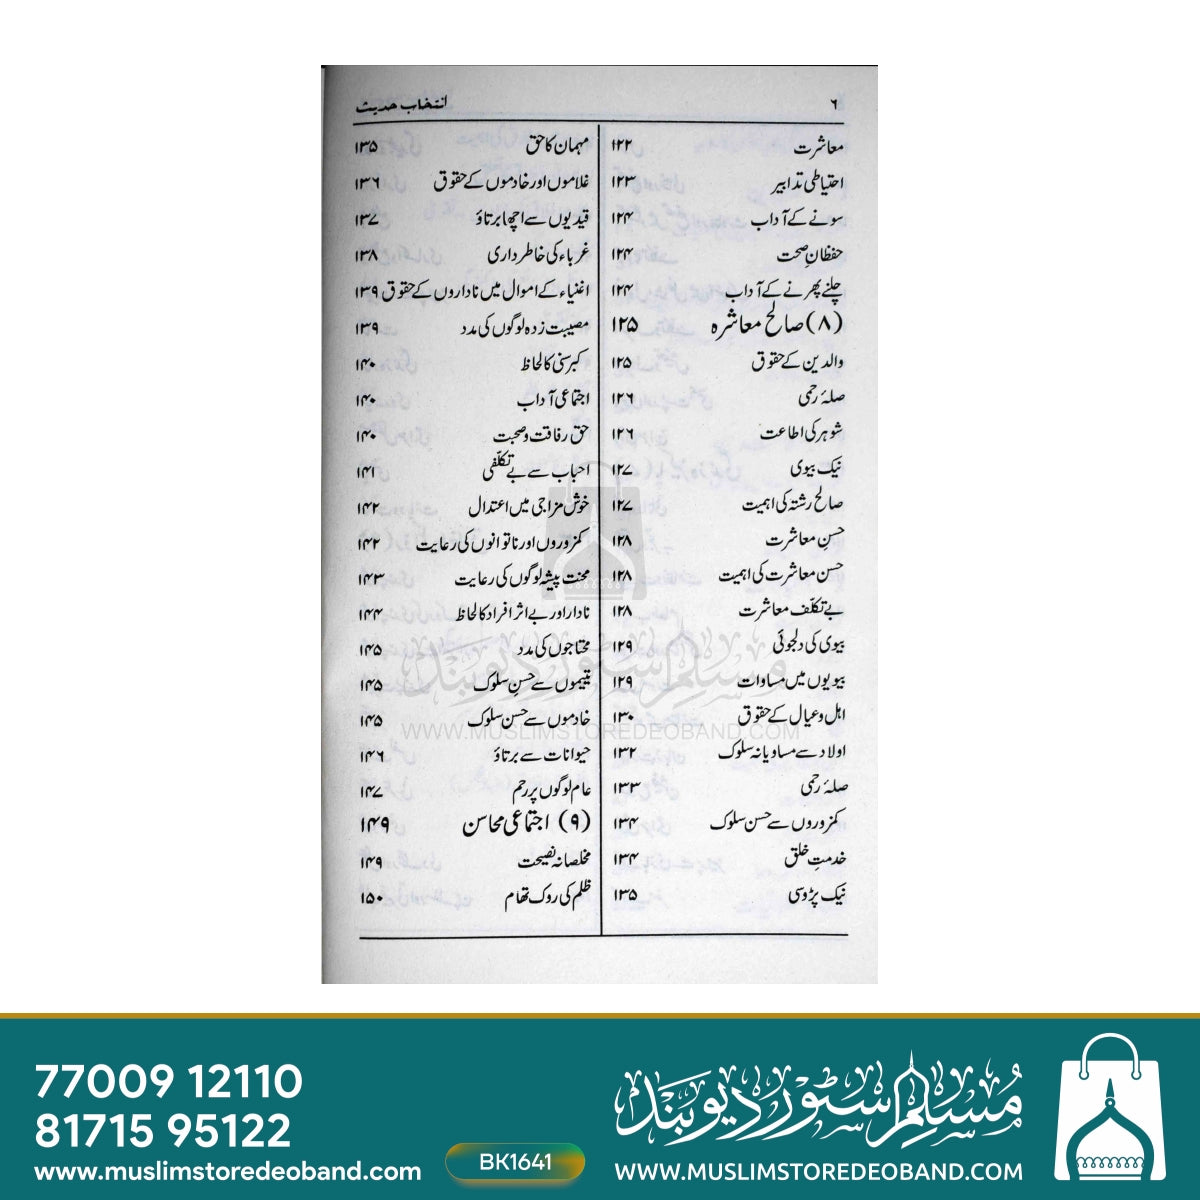 ۶
انتخاب حدیث
معاشرت ۱۲۲
احتیاطی تدابیر ۱۲۳
سونے کے آداب ۱۲۴
حفظانِ صحت ۱۲۴
چلنے پھرنے کے آداب ۱۲۴
(۸) صالح معاشرہ ۱۲۵
والدین کے حقوق ۱۲۵
صلۂ رحمی ۱۲۶
شوہر کی اطاعت ۱۲۶
نیک بیوی ۱۲۷
صالح رشتہ کی اہمیت ۱۲۷
حسنِ معاشرت ۱۲۸
حسن معاشرت کی اہمیت ۱۲۸
بے تکلّف معاشرت ۱۲۸
بیوی کی دلجوئی ۱۲۹
بیویوں میں مساوات ۱۲۹
اہل و عیال کے حقوق ۱۳۰
اولاد سے مساویانہ سلوک ۱۳۲
صلۂ رحمی ۱۳۳
کمزوروں سے حسن سلوک ۱۳۴
خدمتِ خلق ۱۳۴
نیک پڑوسی ۱۳۵
مہمان کا حق ۱۳۵
غلاموں اور خادموں کے حقوق ۱۳۶
قیدیوں سے اچھا برتاؤ ۱۳۷
غرباء کی خاطر داری ۱۳۸
اغنیاء کے اموال میں ناداروں کے حقوق ۱۳۹
مصیبت زدہ لوگوں کی مدد ۱۳۹
کبر سنی کا لحاظ ۱۴۰
اجتماعی آداب ۱۴۰
حق رفاقت و صحبت ۱۴۰
احباب سے بے تکلّفی ۱۴۱
خوش مزاجی میں اعتدال ۱۴۲
کمزوروں اور ناتوانوں کی رعایت ۱۴۲
محنت پیشہ لوگوں کی رعایت ۱۴۳
نادار اور بے اثر افراد کا لحاظ ۱۴۴
محتاجوں کی مدد ۱۴۵
یتیموں سے حسنِ سلوک ۱۴۵
خادموں سے حسن سلوک ۱۴۵
حیوانات سے برتاؤ ۱۴۶
عام لوگوں پر رحم ۱۴۷
(۹) اجتماعی محاسن ۱۴۹
مخلصانہ نصیحت ۱۴۹
ظلم کی روک تھام ۱۵۰
مسلم سٹور دیوبند
WWW.MUSLIMSTOREDEOBAND.COM
77009 12110
81715 95122
www.muslimstoredeoband.com
BK1641
مسلم سٹور دیوبند
WWW.MUSLIMSTOREDEOBAND.COM